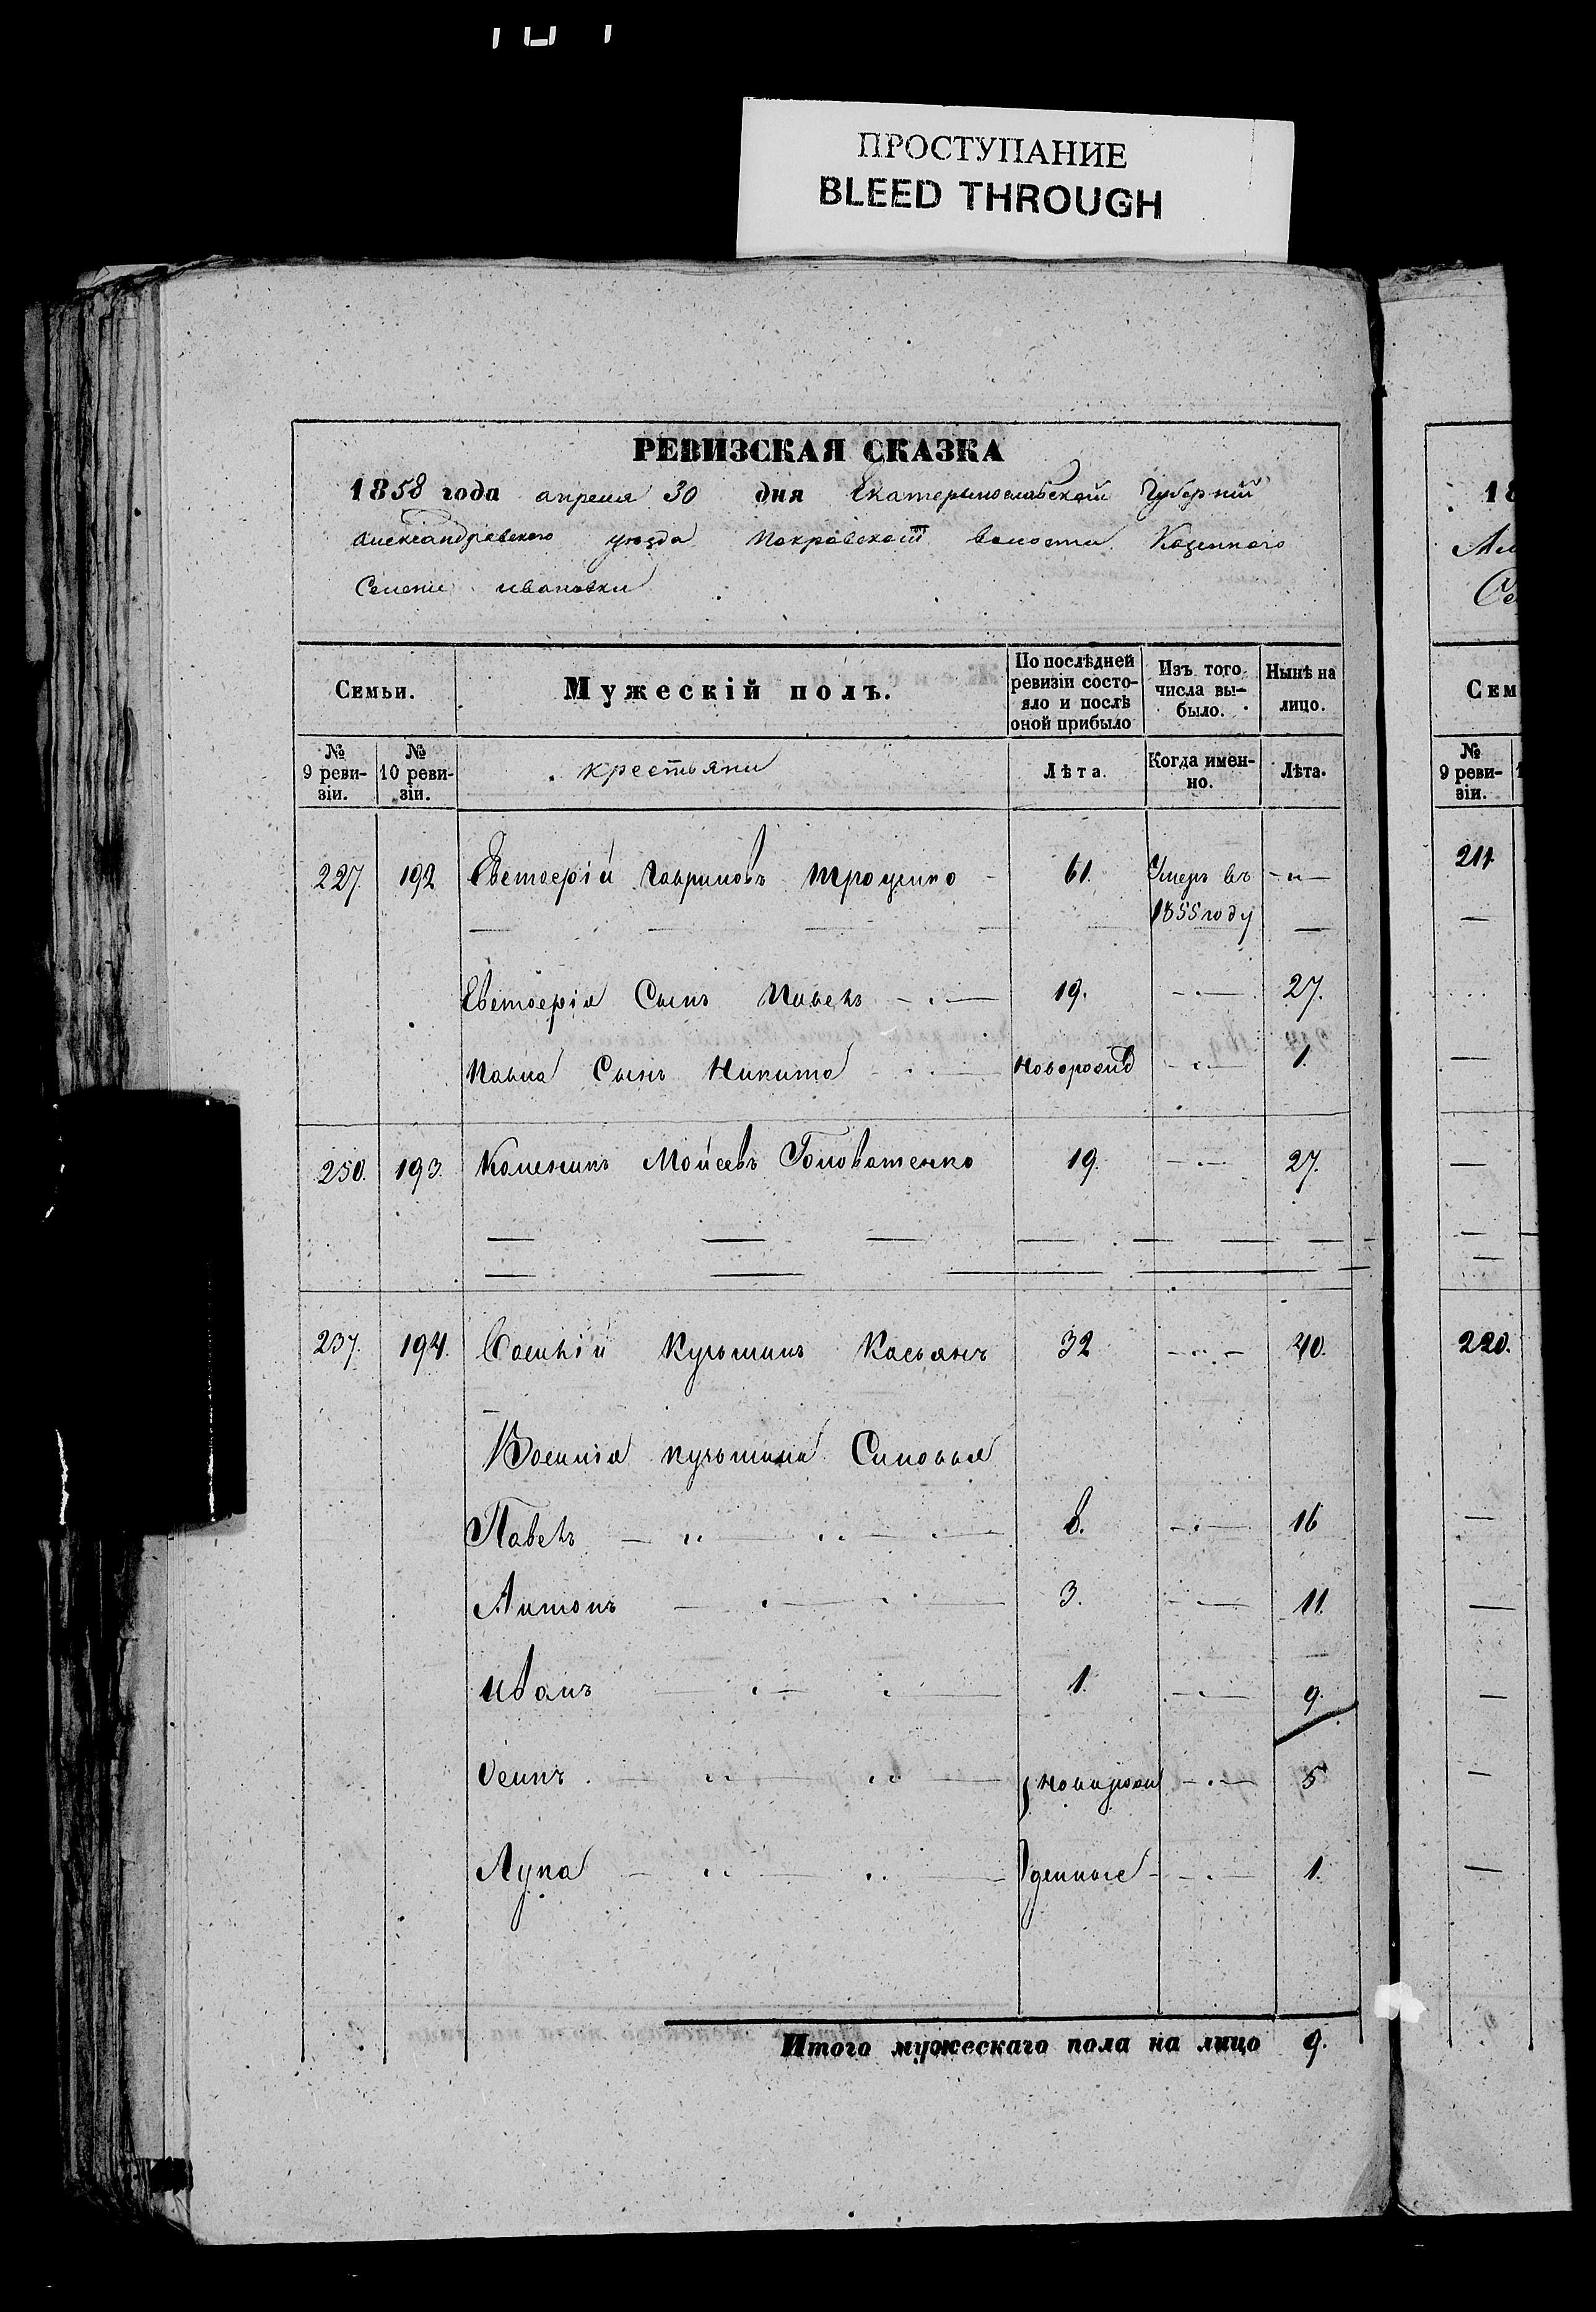 ПРОСТУПАНИЕ
BLEED THROUGH
РЕВИЗСКАЯ СКАЗКА
1858 года апреля 30 дня Екатеринославской Губернии
Александровского уезда Покровской волости Казенного
Селенiе ивановки
Семьи.
Мужескій полъ.
По послѣдней ревизіи состояло и послѣ оной прибыло
Изъ того числа выбыло.
Нынѣ на лицо.
№ 9 ревизіи.
№ 10 ревизіи.
крестьяни
Лѣта.
Когда именно.
Лѣта.
227. 192 Гавриловъ 61. Умеръ въ
1855 году
Сынъ Павелъ 19. 27.
Павла Сынъ Никита новорожд 1.
250. 193. Моисеевъ Головатенко 19. 27.
237. 194. Василій Кузьминъ Касьянъ 32 40.
Василія кузьмина Синовья
Павелъ 8. 16
Антонъ 3. 11.
иванъ 1. 9.
Осипъ новорож 5
Лука денные 1.
Итого мужескаго пола на лицо 9.
18
Сем
№
9 реви-
зіи.
211
220.